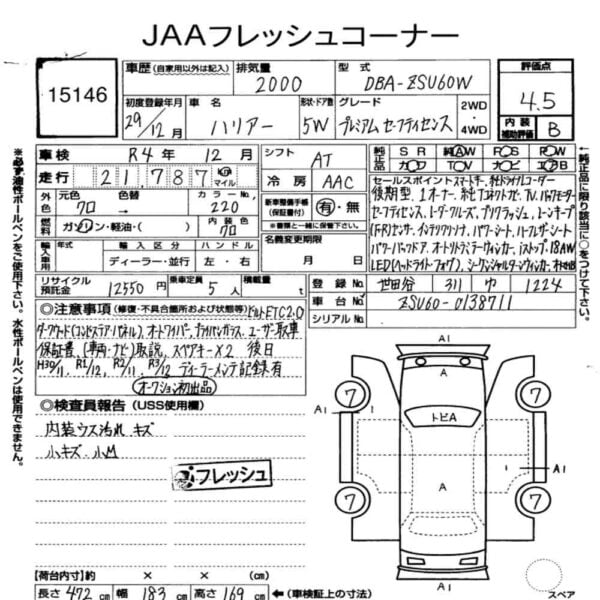 JAAフレッシュコーナー
15146
車歴 (自家用以外は記入) 排気量 2000 型式 DBA-ZSU60W
評価点 4.5
初度登録年月 29/12月 車名 ハリアー 形状・ドア数 5W グレード プレミアム セーフティセンス 2WD・4WD
内装補助評価 B
車検 R4年 12月 シフト AT
純正品 SR AW PS PW カワ TV ナビ エアB
走行 21,787 km マイル 冷房 AAC
元色 クロ → 色 カラーNo. 220
燃料 ガソリン・軽油・( ) 内装色 クロ
新車整備手帳(保証書付) 有・無
※書類と一緒に保管下さい。
セールスポイント スマートキー、純ドライブレコーダー
後期型、1オーナー、純T-コネクトナビ、TV、パワーモード
セーフティセンス、レーダークルーズ、プリクラッシュ、レーンキープ
(FR)センサー、インテリクリソナ、パワーシート、ハーフレザーシート
パワーバックドア、オートリトラミラーウィンカー、iストップ、18AW
LED(ヘッドライト・フォグ)、シークェンシャルターンウィンカー
輸入車用 年式 輸入区分 ハンドル 名義変更期限
年 ディーラー・並行 左・右 月 日
リサイクル預託金 12550円 乗車定員 5人 積載量 t
登録No. 世田谷 311 ゆ 1224
車台No. ZSU60-0138711
シリアルNo.
◎注意事項 (修復・不具合箇所および状態等) ビルトETC2.0
ダークウッド(コンドミラーパネル)、オートワイパー、プライバシーガラス、ユーザー取車
保証書、(車両・ナビ)取説、スペアキー×2 後日
H30/11、R1/12、R2/11、R3/12 ディーラーメンテ記録有
オークション初出品
◎検査員報告 (USS使用欄)
内装ウス汚れ キズ
小キズ・小M
フレッシュ
A1
7
7
A1
トビA
A
A1
7
7
A1
スペア
【荷台内寸】約 × × (cm)
長さ 472 cm 幅 183 cm 高さ 169 cm ←(車検証上の寸法)
※必ず油性ボールペンをご使用下さい。水性ボールペンは使用できません。
※純正品に限り該当に○をつけて下さい。